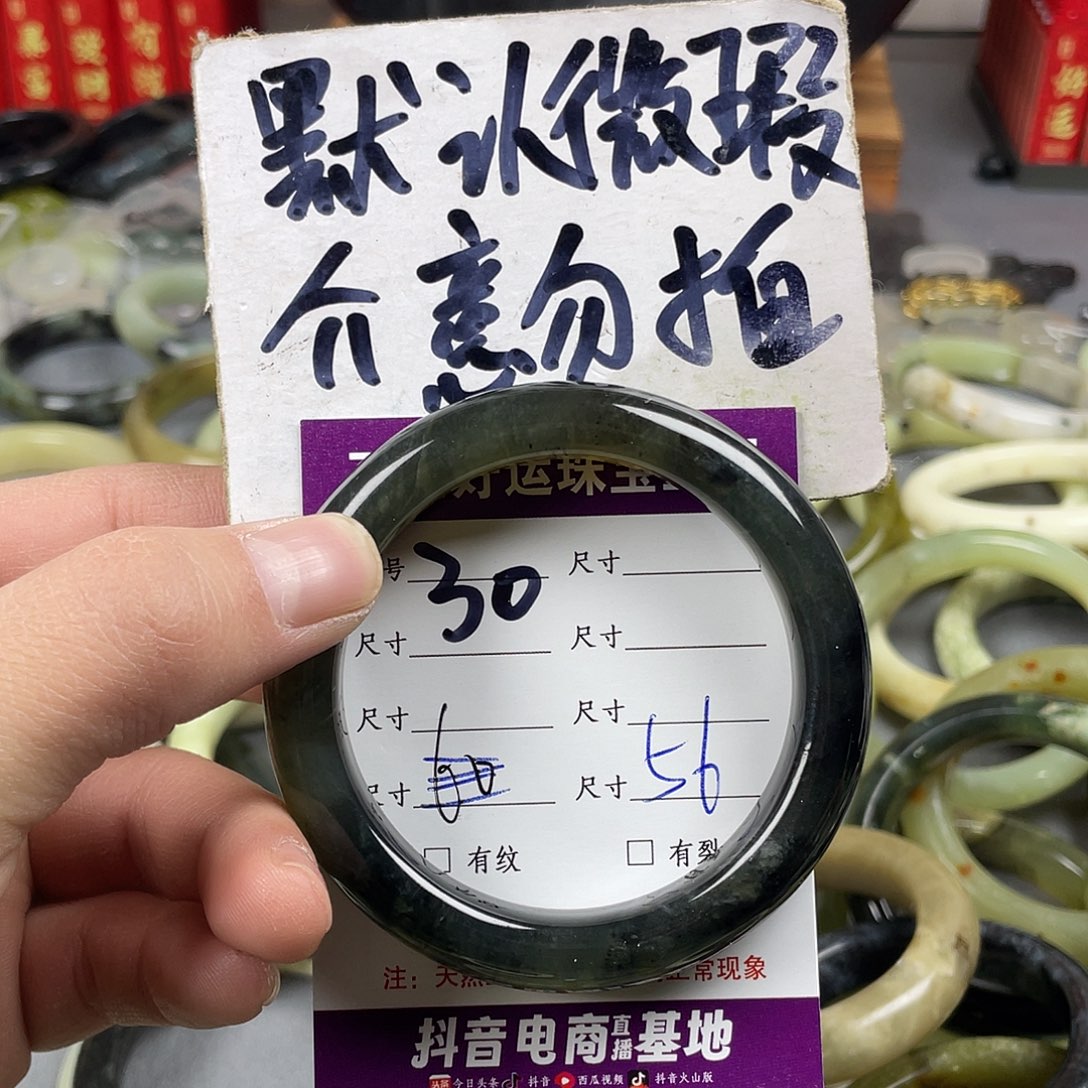 默认微瑕
介意勿拍
好运珠宝
号 30 尺寸
尺寸 尺寸
尺寸 尺寸
尺寸 60 尺寸 56
□ 有纹 □ 有裂
注：天然 正常现象
抖音电商直播基地
头条 今日头条 抖音 西瓜视频 抖音火山版